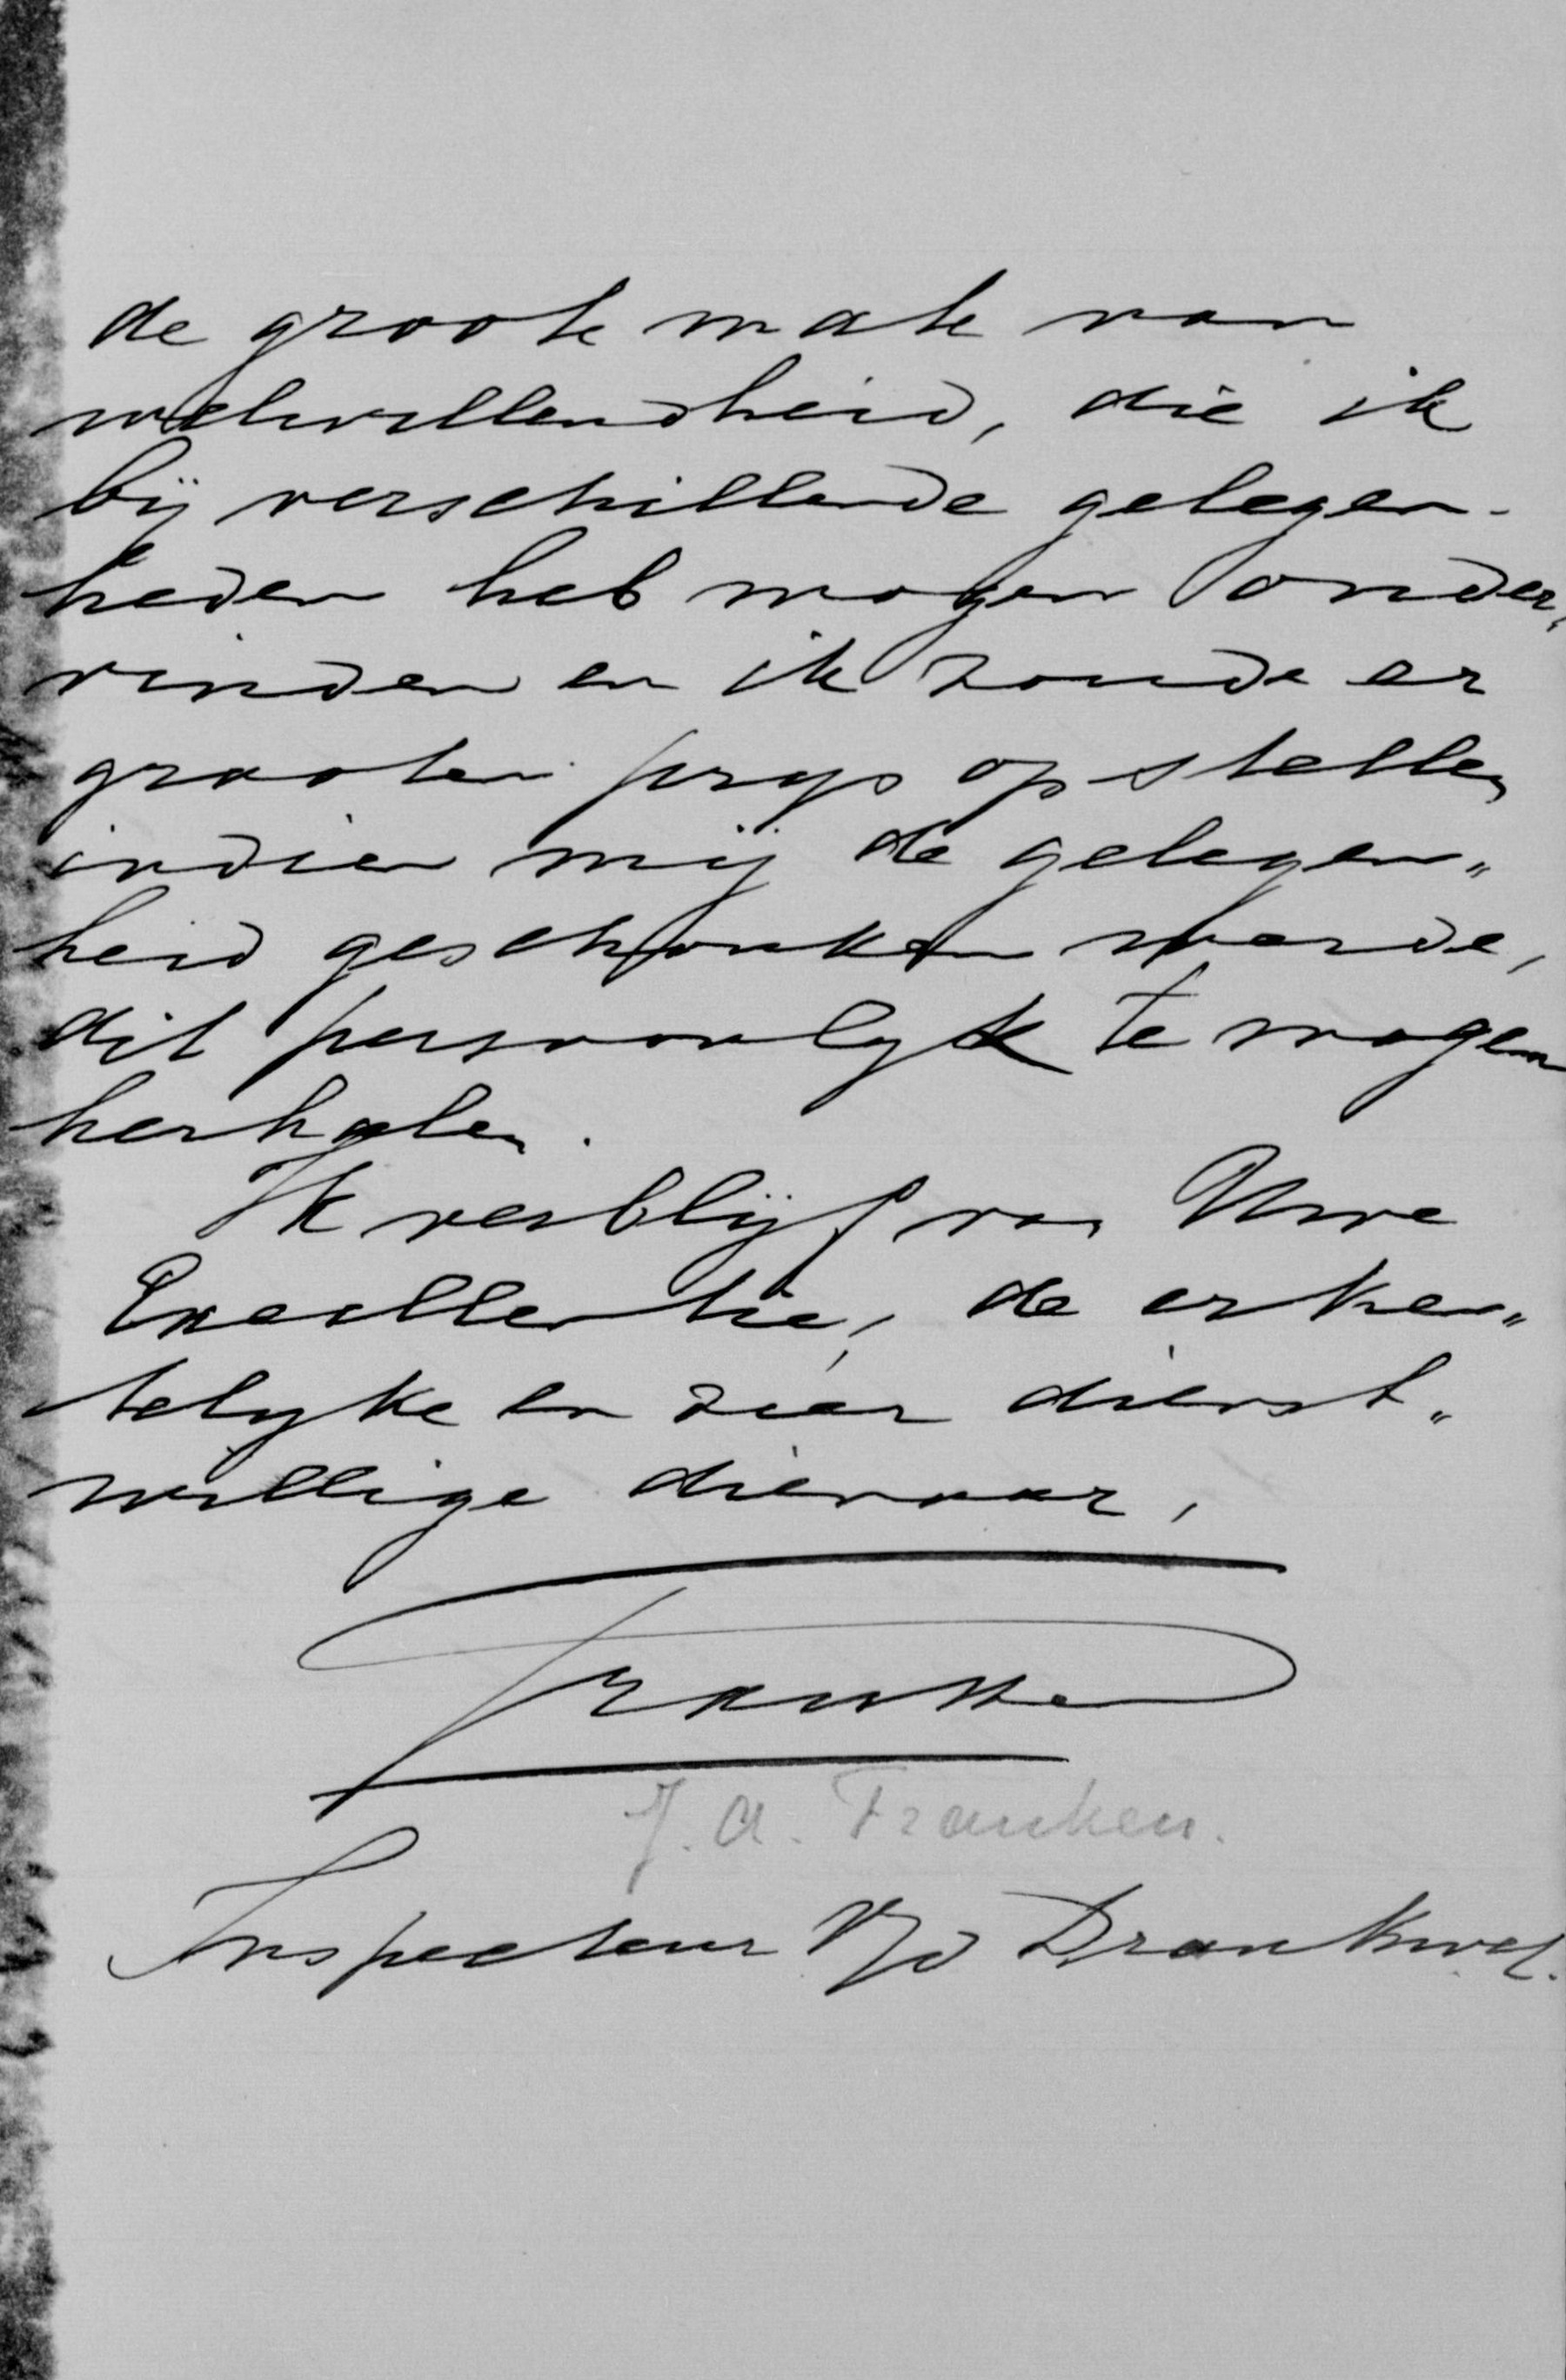 de groote mate van
welwillendheid, die ik
bij verschillende gelegen-
heden heb mogen onder„
vinden en ik zoude er
grooten prys op stellen
indien mij de gelegen„
heid geschonken werde,
dit persoonlyk te mogen
herhalen.
Ik verblijf van Uwe
Excellentie, de erken„
telyke en zeer dienst„
willige dienaar,
Franken
J. A. Franken.
Inspecteur v/d Drankwet.